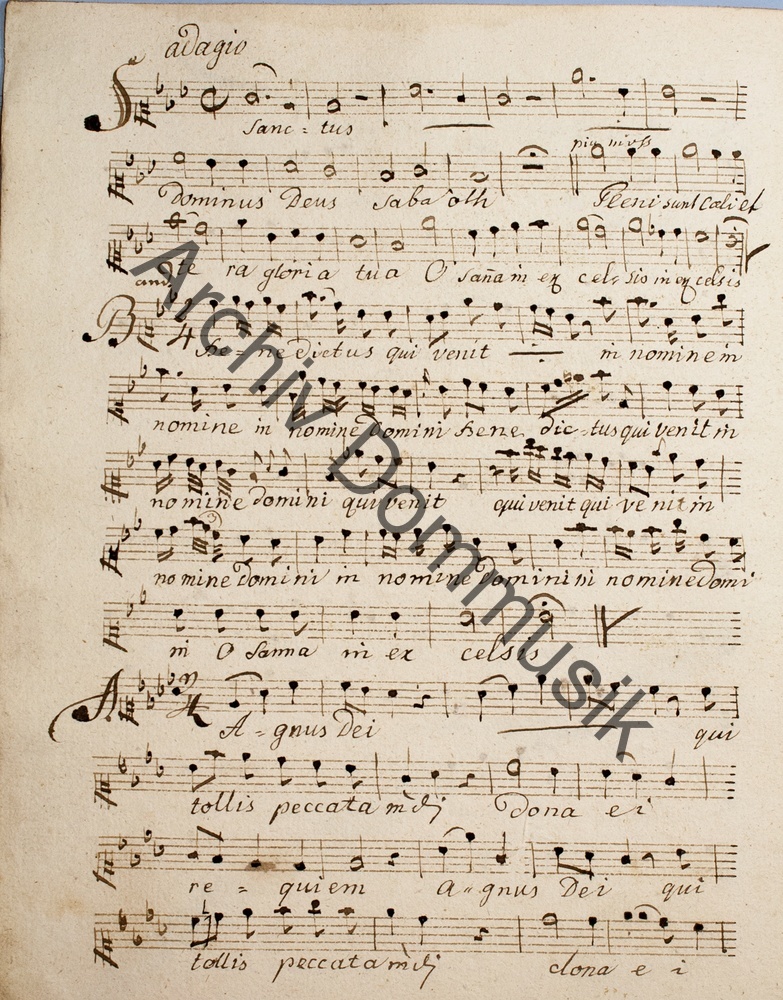 adagio
Sanc = tus
piu moss
Dominus Deus Sabaoth Pleni sunt Cæli et
te ra gloria tua O Sana in ex cel = sis in ex celsis
and
B Be = ne dictus qui venit in nomine in
nomine in nomine Domini Bene dic = tus qui venit in
nomine domini qui venit qui venit qui ve nit in
nomine Domini in nomine Domini in nomine Domi
ni O Sanna in ex celsis
A A = gnus Dei qui
tollis peccata mūdi Dona e i
re = quiem A = gnus Dei qui
tollis peccata mūdi dona e i
Archiv Dommusik